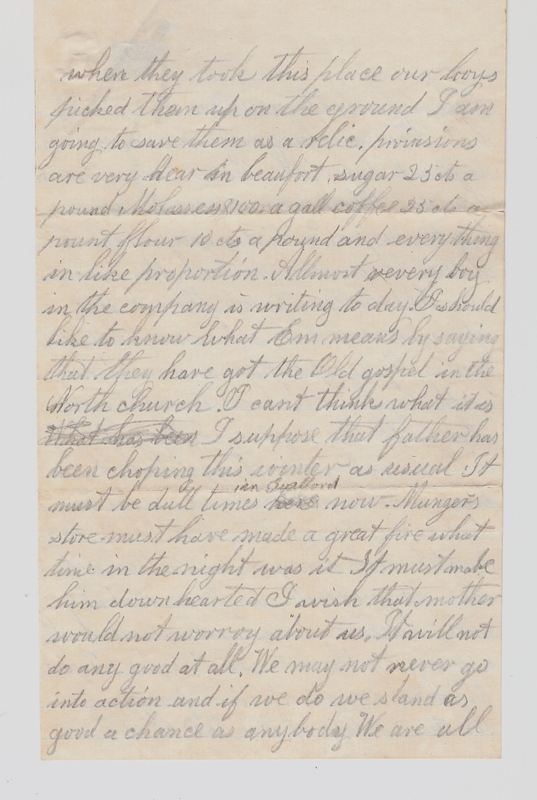 when they took this place our boys
picked them up on the ground I am
going to save them as a relic. provisions
are very dear in beaufort. sugar 25 cts a
pound Molasses $1.00 a gall coffee 35 cts a
pount fflour 10 cts a pound and every thing
in like proportion. Allmost every boy
in the company is writing to day. I should
like to know what Em means by saying
that they have got the Old gospel in the
North church. I cant think what it is
that has been I suppose that father has
been choping this winter as usual It
in Guilford
must be dull times here now. Mungers
store must have made a great fire what
time in the night was it It must make
him down hearted I wish that mother
would not worroy about us, It will not
do any good at all. We may not never go
into action and if we do we stand as
good a chance as anybody We are all